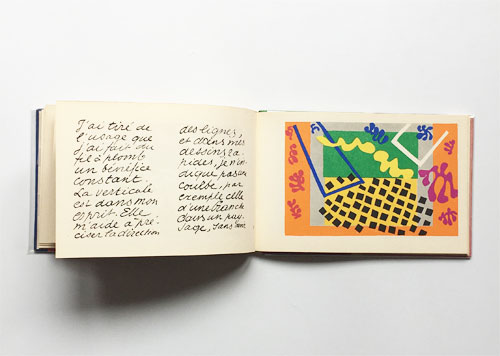 J'ai tiré de
l'usage que
j'ai fait du
fil à plomb
un bénéfice
constant.
La verticale
est dans mon
esprit. Elle
m'aide à pré-
ciser la direction
des lignes,
et dans mes
dessins ra-
pides, je n'in-
dique pas un
courbe, par
exemple celle
d'une branche
dans un pay-
sage, sans